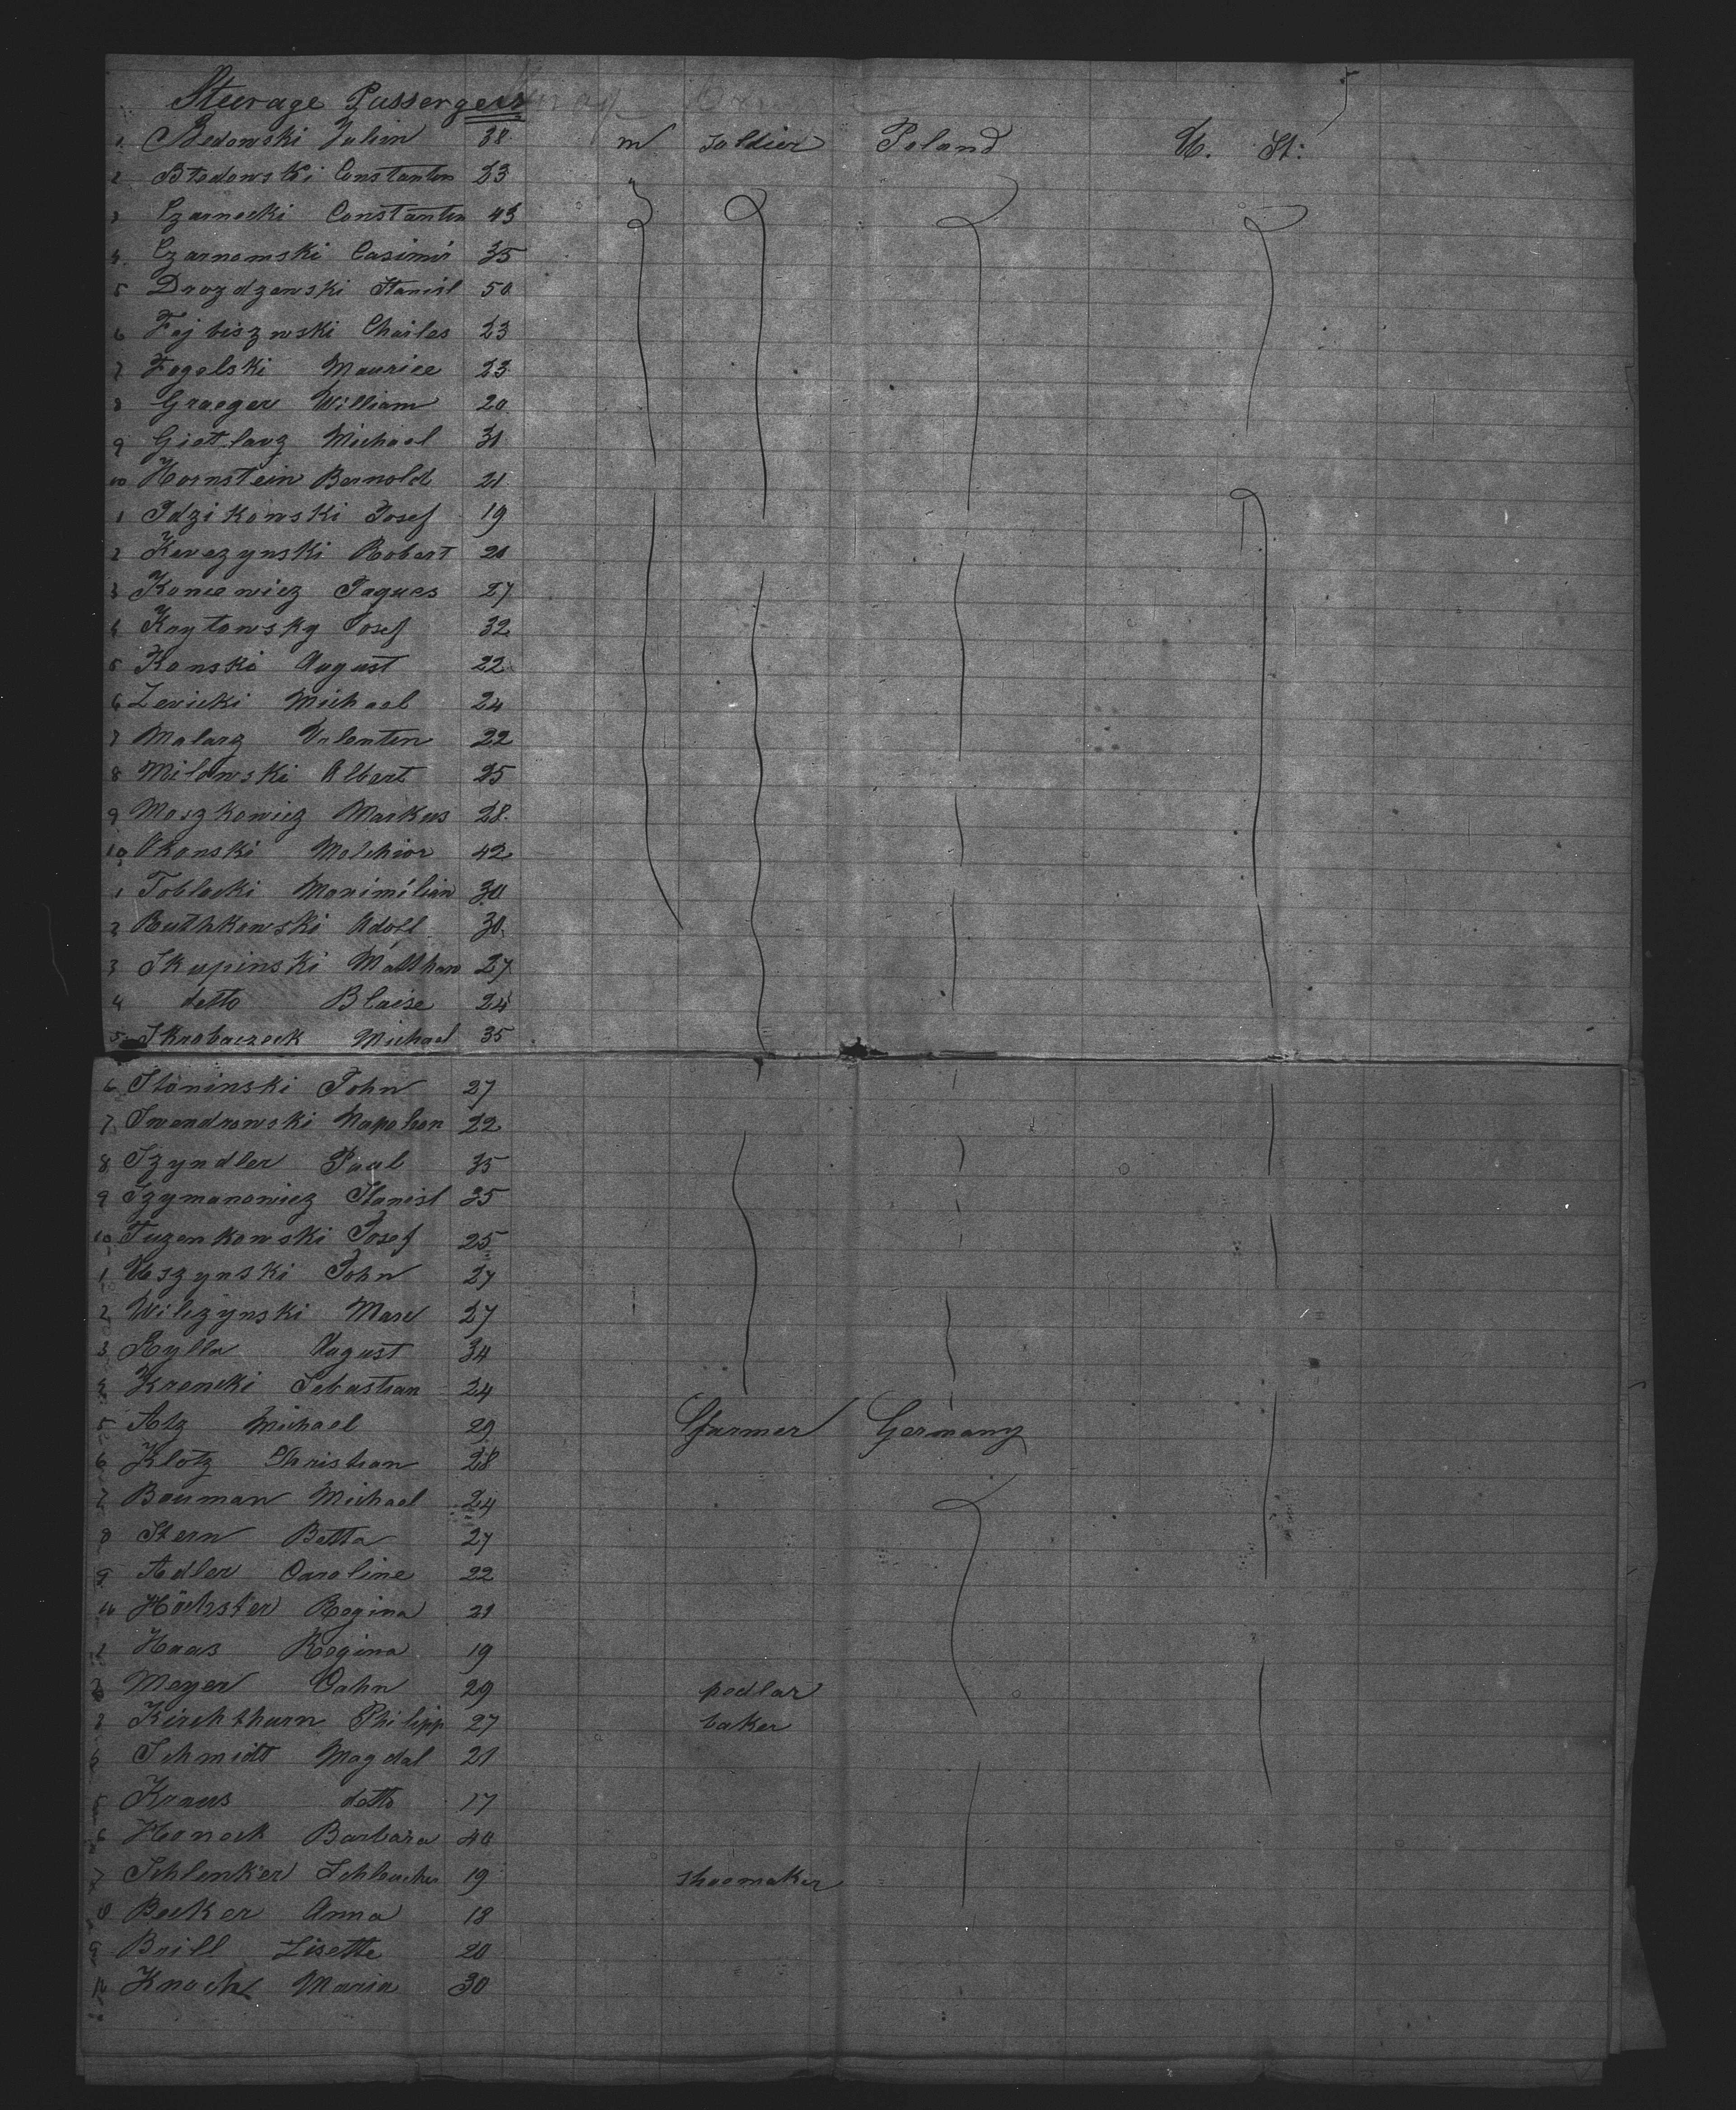 Steerage Passengers
1 Bedowski Julien 38 m soldier Poland U. St:
2 Btedowski Constantin 23 "
3 Czarnecki Constantin 43
4 Czarnomski Casimir 35
5 Drozdzewski Stanisl 50
6 Fajbiszwski Charles 23
7 Fogelski Maurice 23
8 Graeger William 20
9 Michael 31
10 Hornstein Bernold 21
1 Idzikowski Josef 19
2 Kerezynski Robert 20
3 Koncewicz Jaques 27
4 Krytowsky Josef 32
5 Konski August 22
6 Levicki Michael 24
7 Malarz Valentin 22
8 Milowski Albert 25
9 Moszkowicz Markus 28
10 Okonski Melchior 42
1 Toblocki Maximilian 30
2 Ruthkowski Adolf 30
3 Skupinski 27
4 detto Blaise 24
5 Skrobaczeck Michael 35
6 Stoninski John 27
7 Swendrowski Napoleon 22
8 Szyndler Paul 35
9 Szymanowicz Stanisl 35
10 Tuzenkowski Josef 25
1 Uszynski John 27
2 Wilczynski Marc 27
3 Rylla August 34
4 Krencki Sebastian 24
5 Atz Michael 29 farmer Germany
6 Klotz Christian 28
7 Bauman Michael 24
8 Stern Betta 27
9 Adler Caroline 22
10 Höchster Regina 21
1 Haas Regina 19
2 Meyer Cahn 29 pedlar
3 Kirchthurn Philipp 27 baker
4 Schmidt Magdal 21
5 Kraus detto 17
6 Honeck Barbara 40
7 Schlenker 19 shoemaker
8 Becker Anna 18
9 Brill Lisette 20
10 Knoch Maria 30